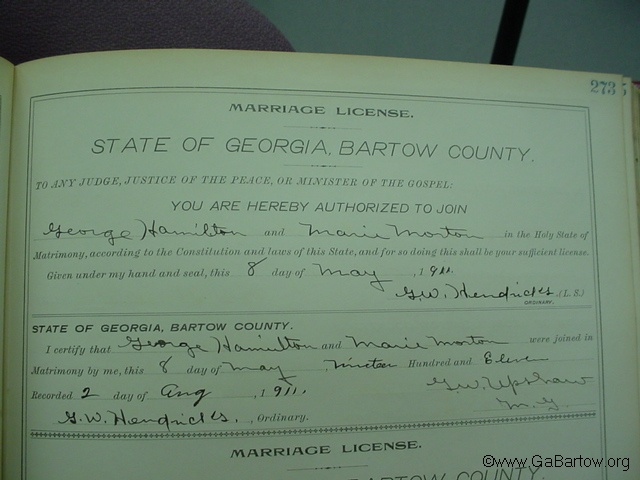 273
MARRIAGE LICENSE.
STATE OF GEORGIA, BARTOW COUNTY.
TO ANY JUDGE, JUSTICE OF THE PEACE, OR MINISTER OF THE GOSPEL:
YOU ARE HEREBY AUTHORIZED TO JOIN
George Hamilton and Marie Morton in the Holy State of
Matrimony, according to the Constitution and laws of this State, and for so doing this shall be your sufficient license.
Given under my hand and seal, this 8 day of May, 1911.
G.W. Hendricks. (L. S.)
ORDINARY.
STATE OF GEORGIA, BARTOW COUNTY.
I certify that George Hamilton and Marie Morton were joined in
Matrimony by me, this 8 day of May, Nineteen Hundred and Eleven
Recorded 2 day of Aug, 1911. G.W. Upshaw
G.W. Hendricks., Ordinary. M.G.
MARRIAGE LICENSE.
BARTOW COUNTY.
©www.GaBartow.org